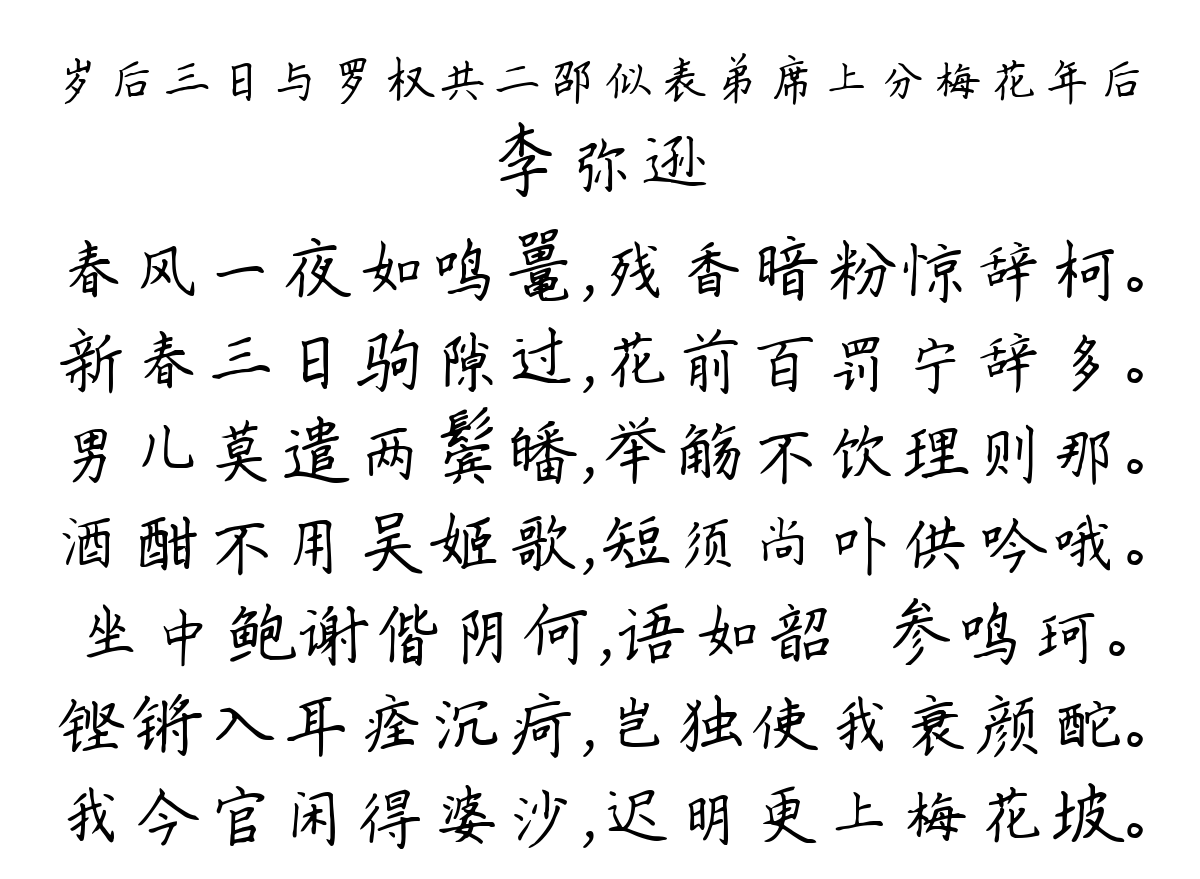 岁后三日与罗权共二邵似表弟席上分梅花年后
李弥逊
春风一夜如鸣鼍,残香暗粉惊辞柯。
新春三日驹隙过,花前百罚宁辞多。
男儿莫遣两鬓皤,举觞不饮理则那。
酒酣不用吴姬歌,短须尚卟供吟哦。
坐中鲍谢偕阴何,语如韶 参鸣珂。
铿锵入耳痊沉疴,岂独使我衰颜酡。
我今官闲得婆沙,迟明更上梅花坡。